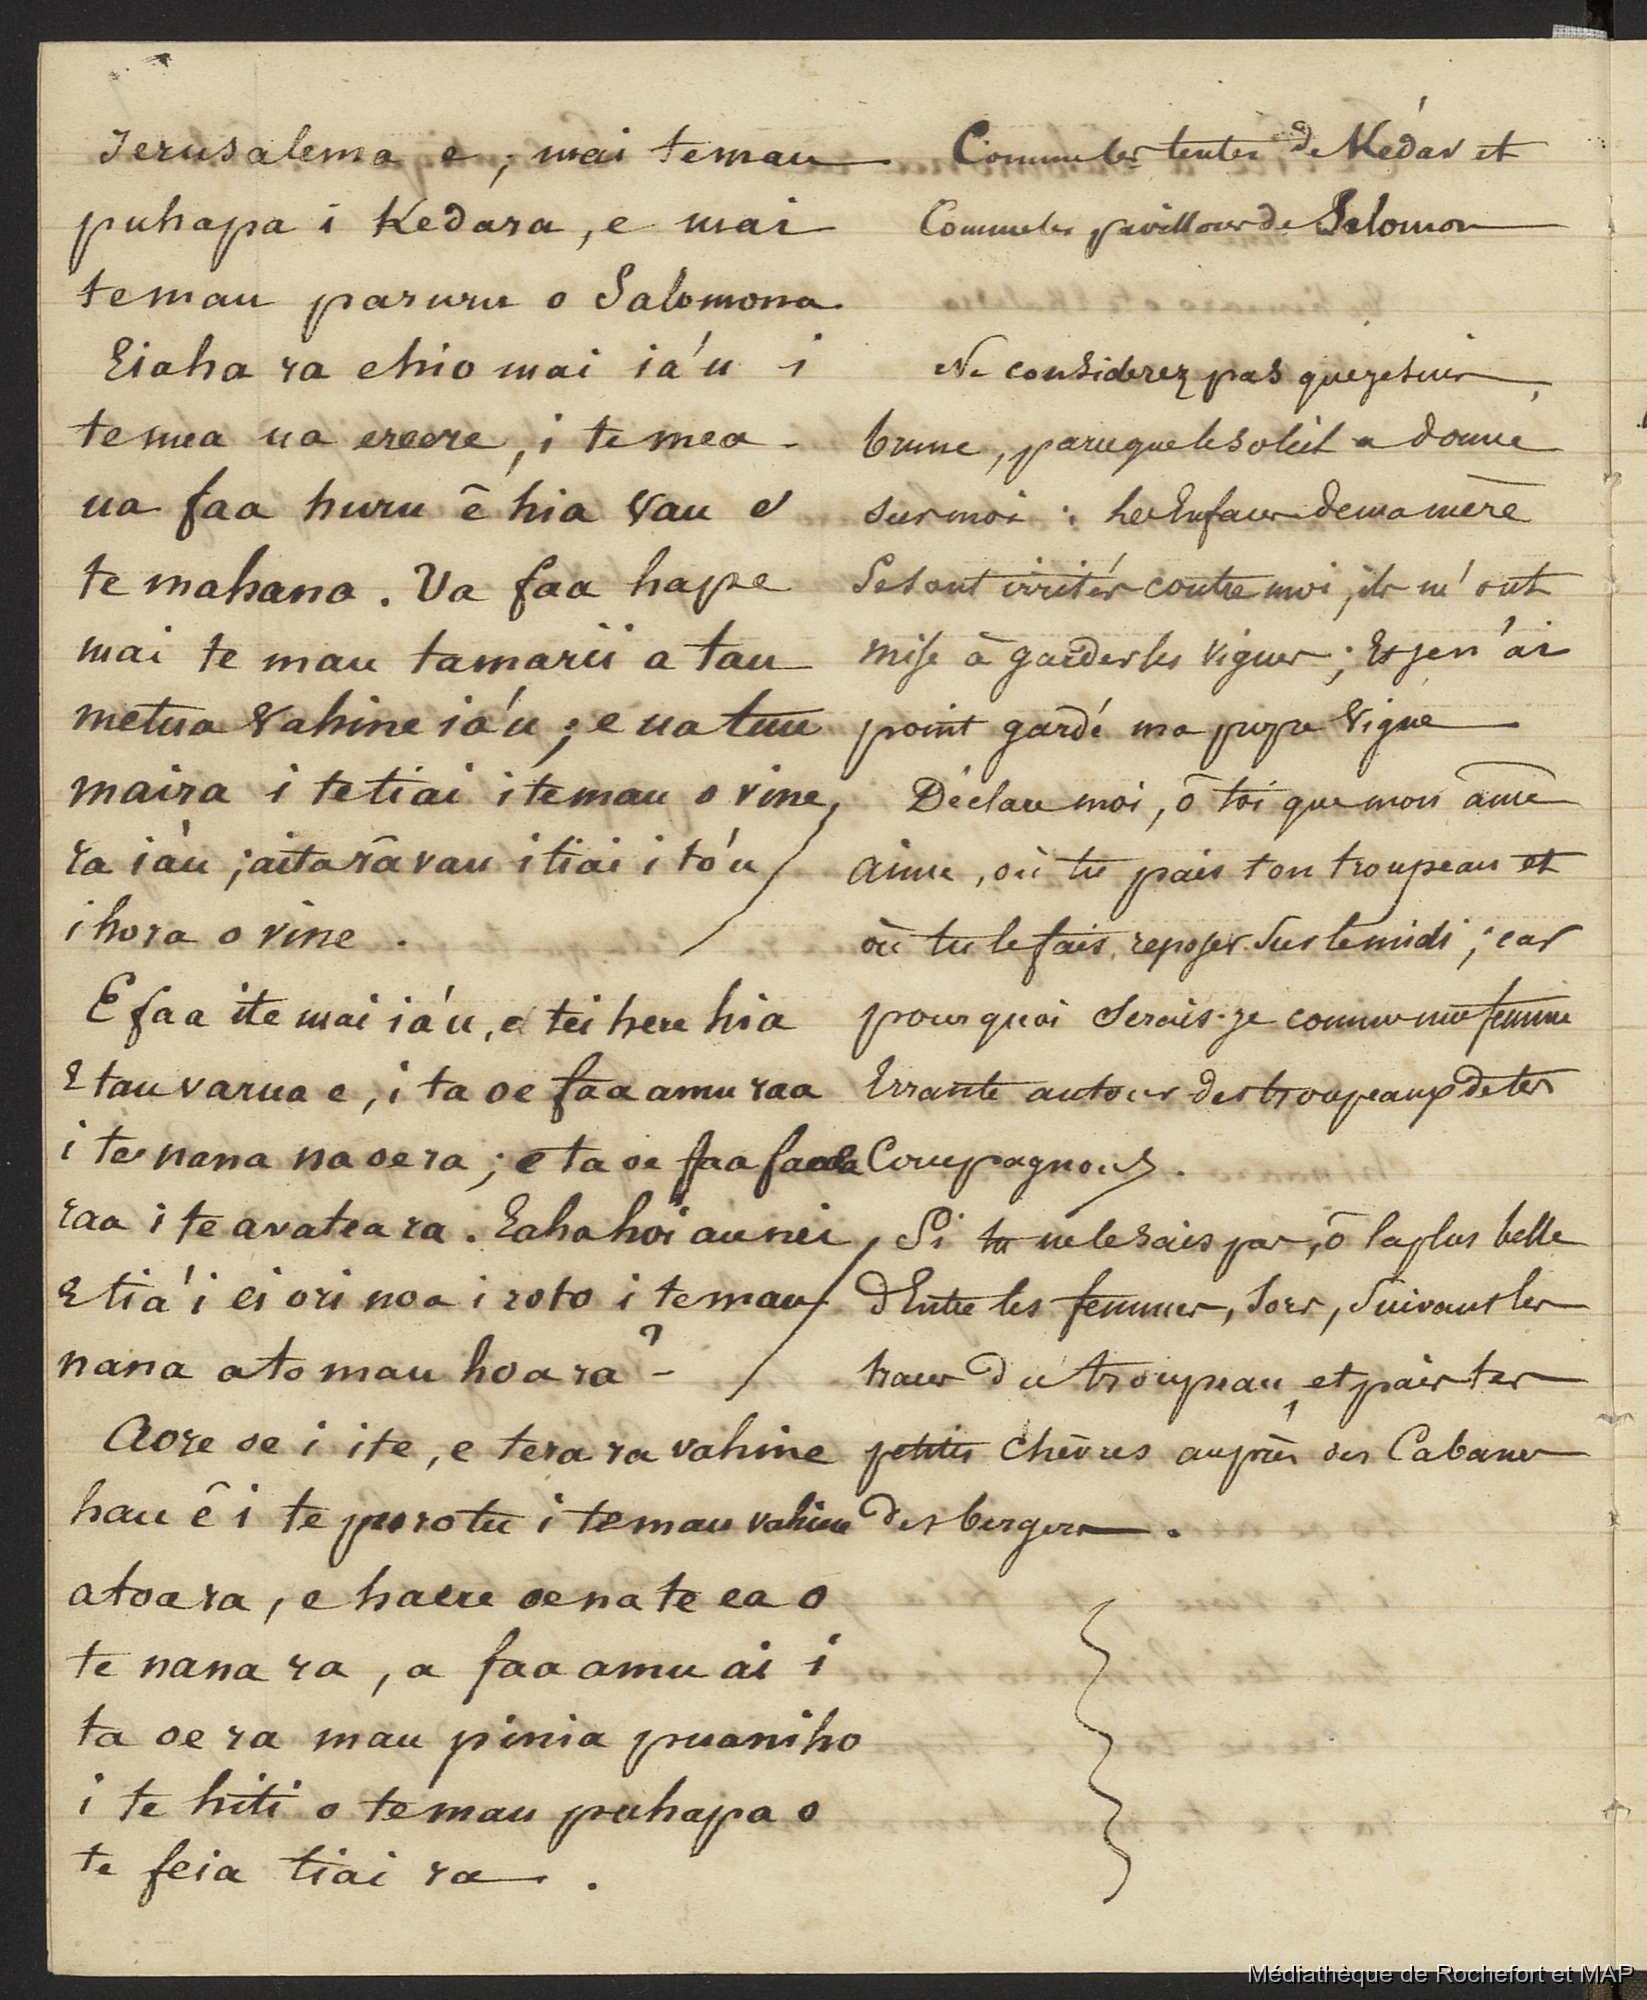 Ierusalema e, mai te mau
puhapa i Kedara, e mai
te mau paruru o Salomona.
Eiaha ra e hio mai ia'u i
te mea ua ereere, i te mea -
ua faa huru ê hia vau e
te mahana. Ua faa hape
mai te mau tamarii a tau
metua vahine ia'u; e ua tuu
maira i te tiai i te mau o vine,
ra ia'u; aita râ vau i tiai i to'u
ihora o vine.
E faa ite mai ia'u, e tei here hia
E tau varua e, i ta oe faa amu raa
i te nana na oe ra; e ta oe faa faaea
raa i te avatea ra. Eaha hoi au nei
E tia'i ei ori noa i roto i te mau
nana a to mau hoa ra? -
Aore oe i ite, e tera ra vahine
hau ê i te purotu i te mau vahine
atoa ra, e haere oe na te ea o
te nana ra, a faa amu ai i
ta oe ra mau pinia puaniho
i te hiti o te mau puhapa o
te feia tiai ra.
Comme les tentes de Kédar et
Comme les pavillons de Salomon
Ne considerez pas que je suis
brune, parceque le soleil a donné
sur moi : les Enfans de ma mère
se sont irrités contre moi, ils m'ont
mise à garder les vignes; Et je n'ai
point gardé ma propre vigne
Déclare moi, ô toi que mon âme
aime, où tu pais ton troupeau et
où tu le fais reposer sur le midi; car
pourquoi serais-je comme une femme
Errante autour des troupeaux de tes
Compagnons.
Si tu ne le sais pas, ô la plus belle
d'Entre les femmes, sors, suivant les
traces du troupeau, et pais tes
petites chèvres auprès des Cabanes
des bergers.
Médiathèque de Rochefort et MAP